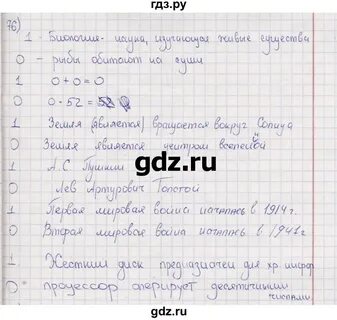 76)
1 - Биология - наука, изучающая живые существа
0 - рыбы обитают на суши
1 0 + 0 = 0
0 0 · 52 = 0
1 Земля (является) вращается вокруг Солнца
0 Земля является центром вселеной
1 А.С. Пушкин
0 Лев Артурович Толстой
1 Первая мировая война началась в 1914 г.
0 Вторая мировая война началась в 1941 г.
1 Жесткий диск предназначен для хр. информ
0 процессор оперирует десятичными
числами.
gdz.ru
gdz.ru
gdz.ru